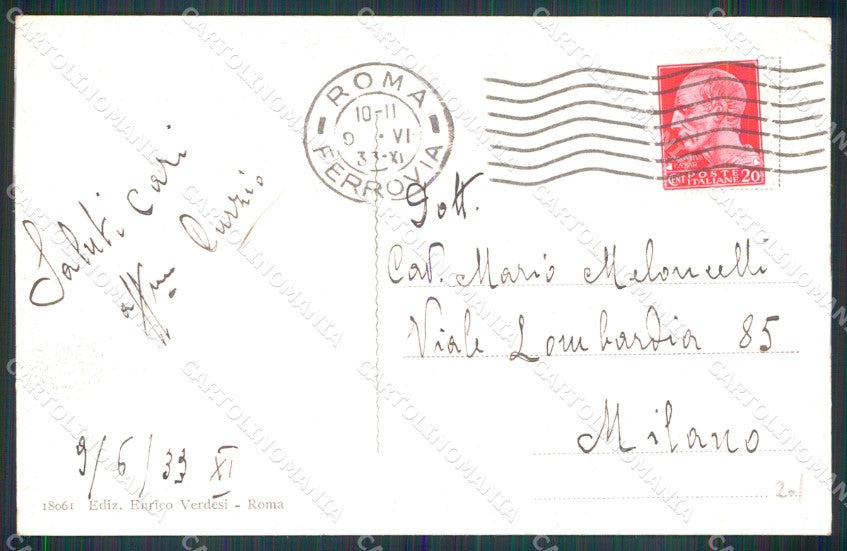 ROMA
10-11
9 · VI
33·XI
FERROVIA
POSTE
CENT ITALIANE 20
Saluti cari
aff.mo
Dott.
Cav. Mario Meloncelli
Viale Lombardia 85
Milano
9/6/33 XI
18061 Ediz. Enrico Verdesi - Roma
CARTOLINOMANIA